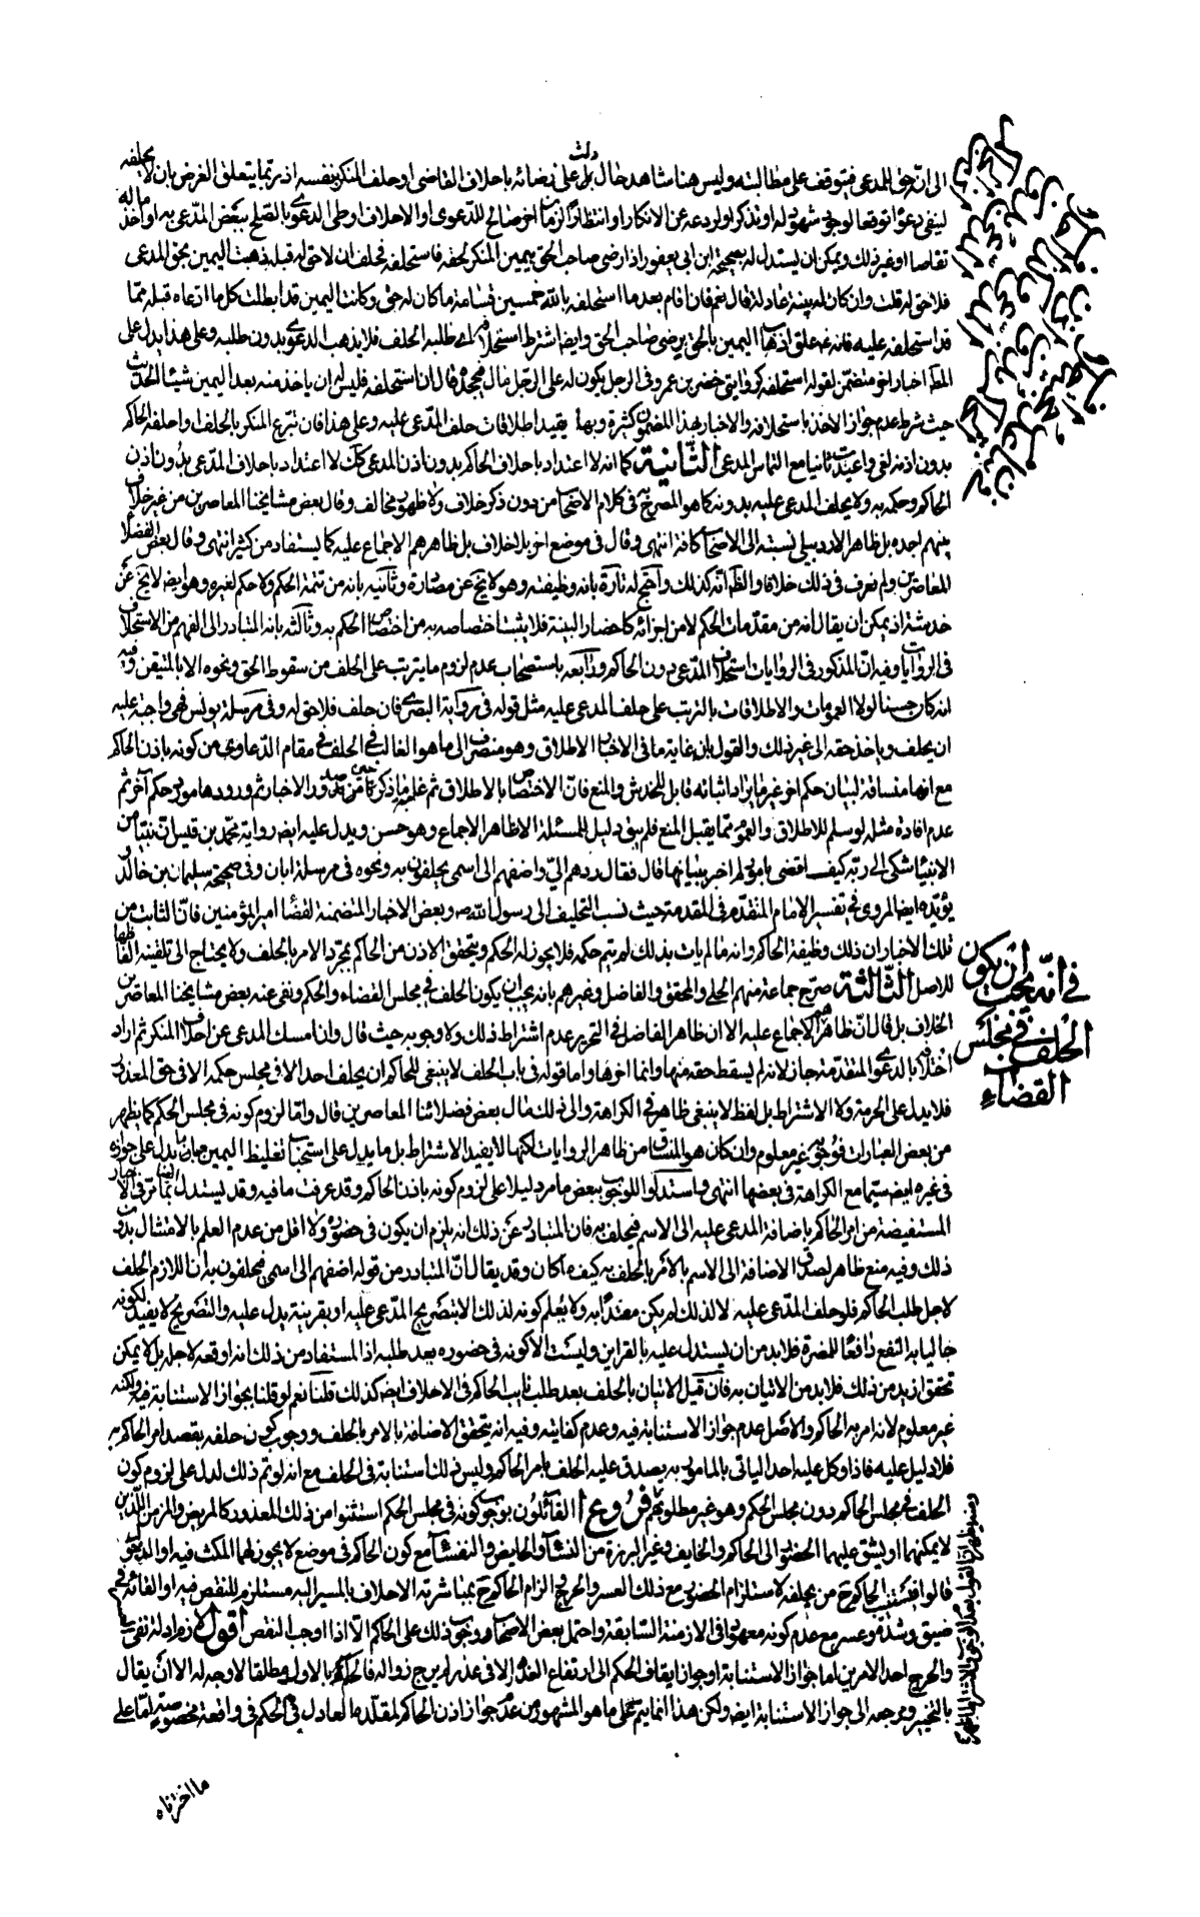 الى انه حق للمدعى فيتوقف على مطالبته وليس هنا شاهد حال على رضائه باحلاف القاضى او حلف المنكر بنفسه اذ ربما يتعلق الغرض بان لا يحلفه
ليبقى دعواه توقعا لوجود شهود له او تذكر او لردعه عن الانكار او انتظارا لزمان اخر صالح للدعوى او الاحلاف او طى الدعوى بالصلح ببعض المدعى به او اخذ ماله
تقاصا او غير ذلك ويمكن ان يستدل له بصحيحة ابن ابى يعفور اذا رضى صاحب الحق بيمين المنكر لحقه فاستحلفه فحلف ان لا حق له قبله ذهبت اليمين بحق المدعى
فلا حق له قلت وان كان له بينة عادلة قال نعم فان اقام بعد ما استحلفه بالله خمسين قسامة ما كان له حق وكانت اليمين قد ابطلت كل ما ادعاه قبله مما
قد استحلفه عليه فانه علق اذهاب اليمين بالحق برضى صاحب الحق وايضا اشترط استحلافه اى طلبه الحلف فلا يذهب الدعوى بدون طلبه وعلى هذا يدل على
المط اخبار اخر متضمن لقوله استحلفه كروايتى خضر بن عمرو فى الرجل يكون له على الرجل مال فيجحده قال ان استحلفه فليس له ان ياخذ منه بعد اليمين شيئا الحديث
حيث شرط عدم جواز الاخذ باستحلافه والاخبار بهذا المضمون كثيرة وبها يقيد اطلاقات حلف المدعى عليه وعلى هذا فان تبرع المنكر بالحلف او احلفه الحاكم
بدون اذنه لغى واعيدت ثانيا مع التماس المدعى الثانية كما انه لا اعتداد باحلاف الحاكم بدون اذن المدعى كك لا اعتداد باحلاف المدعى بدون اذن
الحاكم وحكمه به ولا يحلف المدعى عليه بدونه كما هو المصرح به فى كلام الاصحاب من دون ذكر خلاف ولا ظهور مخالف وقال بعض مشايخنا المعاصرين من غير خلاف
بينهم اجده بل ظاهر الاردبيلى نسبته الى الاصحاب كافة انتهى وقال فى موضع اخر بلا خلاف بل ظاهرهم الاجماع عليه كما يستفاد من كثير انتهى وقال بعض الفضلاء
المعاصرين ولم نعرف فى ذلك خلافا والظ انه كذلك واحتج له تارة بانه وظيفته وهو لا يخ عن مصادرة وثانية بانه من تتمة الحكم ولا حكم لغيره وهو ايضا لا يخ عن
خدشة اذ يمكن ان يقال انه من مقدمات الحكم لا من اجزائه كاحضار البينة فلا يثبت اختصاصه به من اختصاص الحكم به وثالثة بانه المتبادر الى الفهم من الاستحلاف
فى الروايات وفيه ان المذكور فى الروايات استحلاف المدعى دون الحاكم ورابعة باستصحاب عدم لزوم ما يترتب على الحلف من سقوط الحق ونحوه الا بالمتيقن وفيه
انه كان حسنا لولا العمومات والاطلاقات بالترتب على حلف المدعى عليه مثل قوله فى رواية البصرى فان حلف فلا حق له وفى مرسلة يونس فهى واجبة عليه
ان يحلف وياخذ حقه الى غير ذلك والقول بان غاية ما فى الاخبار الاطلاق وهو منصرف الى ما هو الغالب فى الحلف فى مقام الدعاوى من كونه باذن الحاكم
مع انها منساقة لبيان حكم اخر غير ما يراد اثباته قابل للخدش والمنع فان الاختصاص بالاطلاق ثم غلبة ما ذكر حين صدور الاخبار ثم ورودها مورد حكم آخر ثم
عدم افادة مثله لو سلم للاطلاق والعموم مما يقبل المنع فلم يبق دليل للمسئلة الا ظاهر الاجماع وهو حسن ويدل عليه ايضا رواية محمد بن قيس ان نبيا من
الانبياء شكى الى ربه كيف اقضى بامور لم اخبر ببيانها قال فقال ردهم الى واضفهم الى اسمى يحلفون به ونحوه فى مرسلة ابان وفى صحيحة سليمان بن خالد و
يؤيده ايضا المروى فى تفسير الامام المتقدم فى المقدمة حيث نسب التحليف الى رسول الله ص وبعض الاخبار المتضمنة لقضاء امير المؤمنين فان الثابت من
تلك الاخبار ان ذلك وظيفة الحاكم وانه ما لم يات بذلك لم يتم حكمه فلا يجوز له الحكم ويتحقق الاذن من الحاكم بمجرد الامر بالحلف ولا يحتاج الى تلقينه الفاظها
للاصل الثالثة صرح جماعة منهم الحلى والمحقق والفاضل وغيرهم بانه يجب ان يكون الحلف فى مجلس القضاء والحكم ونفى عنه بعض مشايخنا المعاصرين
الخلاف بل قال ان ظاهرهم الاجماع عليه الا ان ظاهر الفاضل فى التحرير عدم اشتراط ذلك ولا وجوبه حيث قال وان امسك المدعى عن احلاف المنكر ثم اراد
احلافه بالدعوى المتقدمة جاز لانه لم يسقط حقه منها وانما اخرها واما قوله فى باب الحلف لا ينبغى للحاكم ان يحلف احدا الا فى مجلس حكمه الا فى حق المعذور
فلا يدل على الحرمة ولا الاشتراط بل لفظ لا ينبغى ظاهر فى الكراهة والى ذلك مال بعض فضلائنا المعاصرين قال واما لزوم كونه فى مجلس الحكم كما يظهر
من بعض العبارات فوجهه غير معلوم وان كان هو المنساق من ظاهر الروايات لكنها لا يفيد الاشتراط بل ما يدل على استحباب تغليظ اليمين مما يدل على جوازه
فى غيره ايضا سيما مع الكراهة فى بعضها انتهى واستدلوا للوجوب ببعض ما مر دليلا على لزوم كونه باذن الحاكم وقد عرفت ما فيه وقد يستدل ايضا بما مر فى الاخبار
المستفيضة من امر الحاكم باضافة المدعى عليه الى الاسم فيحلف به فان المتبادر عن ذلك انه يلزم ان يكون فى حضوره ولا اقل من عدم العلم بالامتثال بدون
ذلك وفيه منع ظاهر لصدق الاضافة الى الاسم بالامر بالحلف به كيف ما كان وقد يقال ان المتبادر من قوله اضفهم الى اسمى فيحلفون به ان اللازم الحلف
لاجل طلب الحاكم فلو حلف المدعى عليه لا لذلك لم يكن معتدا به ولا يعلم كونه لذلك الا بتصريح المدعى عليه او بقرينة يدل عليه والتصريح لا يفيد لكونه
جالبا به النفع دافعا للمضرة فلا بد من ان يستدل عليه بالقراين وليست الا كونه فى حضوره بعد طلبه اذ المستفاد من ذلك انه اوقعه لاجله بل لا يمكن
تحقق ازيد من ذلك فلا بد من الاتيان به فان قيل الاتيان بالحلف بعد طلب نايب الحاكم فى الاحلاف ايضا كذلك قلنا نعم لو قلنا بجواز الاستنابة فيه ولكنه
غير معلوم لانه امر به الحاكم والاصل عدم جواز الاستنابة فيه وعدم كفايته وفيه انه يتحقق الاضافة بالامر بالحلف ووجوب كون حلفه بقصد امر الحاكم به
فلا دليل عليه فاذا وكل عليه احدا لياتى بالمامور به يصدق عليه الحلف بامر الحاكم وليس ذلك استنابة فى الحلف مع انه لو تم ذلك لدل على لزوم كون
الحلف فى مجلس الحاكم دون مجلس الحكم وهو غير مطلوبهم فروع ا القائلون بوجوب كونه فى مجلس الحكم استثنوا من ذلك المعذور كالمريض والزمن اللذين
لا يمكنهما او يشق عليهما الحضور الى الحاكم والخايف وغير البرزة من النساء والحايض والنفساء مع كون الحاكم فى موضع لا يجوز لهما المكث فيه او الدخول
قالوا فيستنيب الحاكم ح من يحلفه لاستلزام الحضور مع ذلك العسر والحرج والزام الحاكم ح بمباشرته الاحلاف بالمسير اليه مستلزم للنقص فيه او القائه فى
ضيق وشدة وعسر مع عدم كونه معهودا فى الازمنة السابقة واحتمل بعض الاصحاب وجوب ذلك على الحاكم الا اذا اوجب النقص اقول لازم ادلة نفى العسر
والحرج احد الامرين اما جواز الاستنابة او جواز ايقاف الحكم الى ارتفاع العذر الا فى عذر لم يرج زواله فالحكم بالاول مطلقا لا وجه له الا ان يقال
بالتخيير ومرجعه الى جواز الاستنابة ايضا ولكن هذا انما يتم على ما هو المشهور من عدم جواز اذن الحاكم لمقلده العادل فى الحكم فى واقعة مخصوصة اما على
ما اخترناه
فى انه يجب ان يكون
الحلف فى مجلس
القضاء